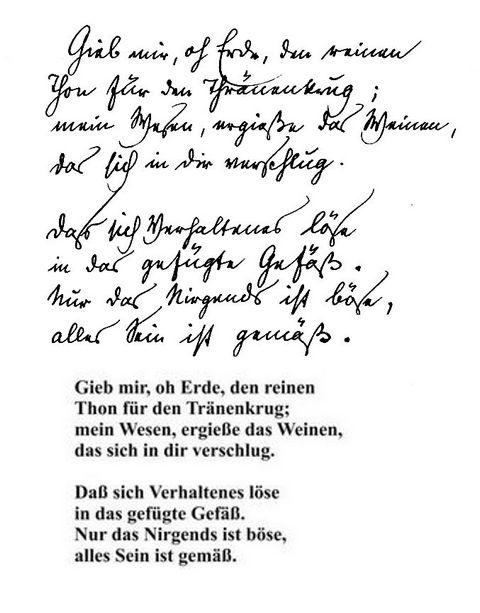 Gieb mir, oh Erde, den reinen
Thon für den Thränenkrug;
mein Wesen, ergieße das Weinen,
das sich in dir verschlug.
Dass sich Verhaltenes löse
in das gefügte Gefäß.
Nur das Nirgends ist böse,
alles Sein ist gemäß.
Gieb mir, oh Erde, den reinen
Thon für den Tränenkrug;
mein Wesen, ergieße das Weinen,
das sich in dir verschlug.
Daß sich Verhaltenes löse
in das gefügte Gefäß.
Nur das Nirgends ist böse,
alles Sein ist gemäß.